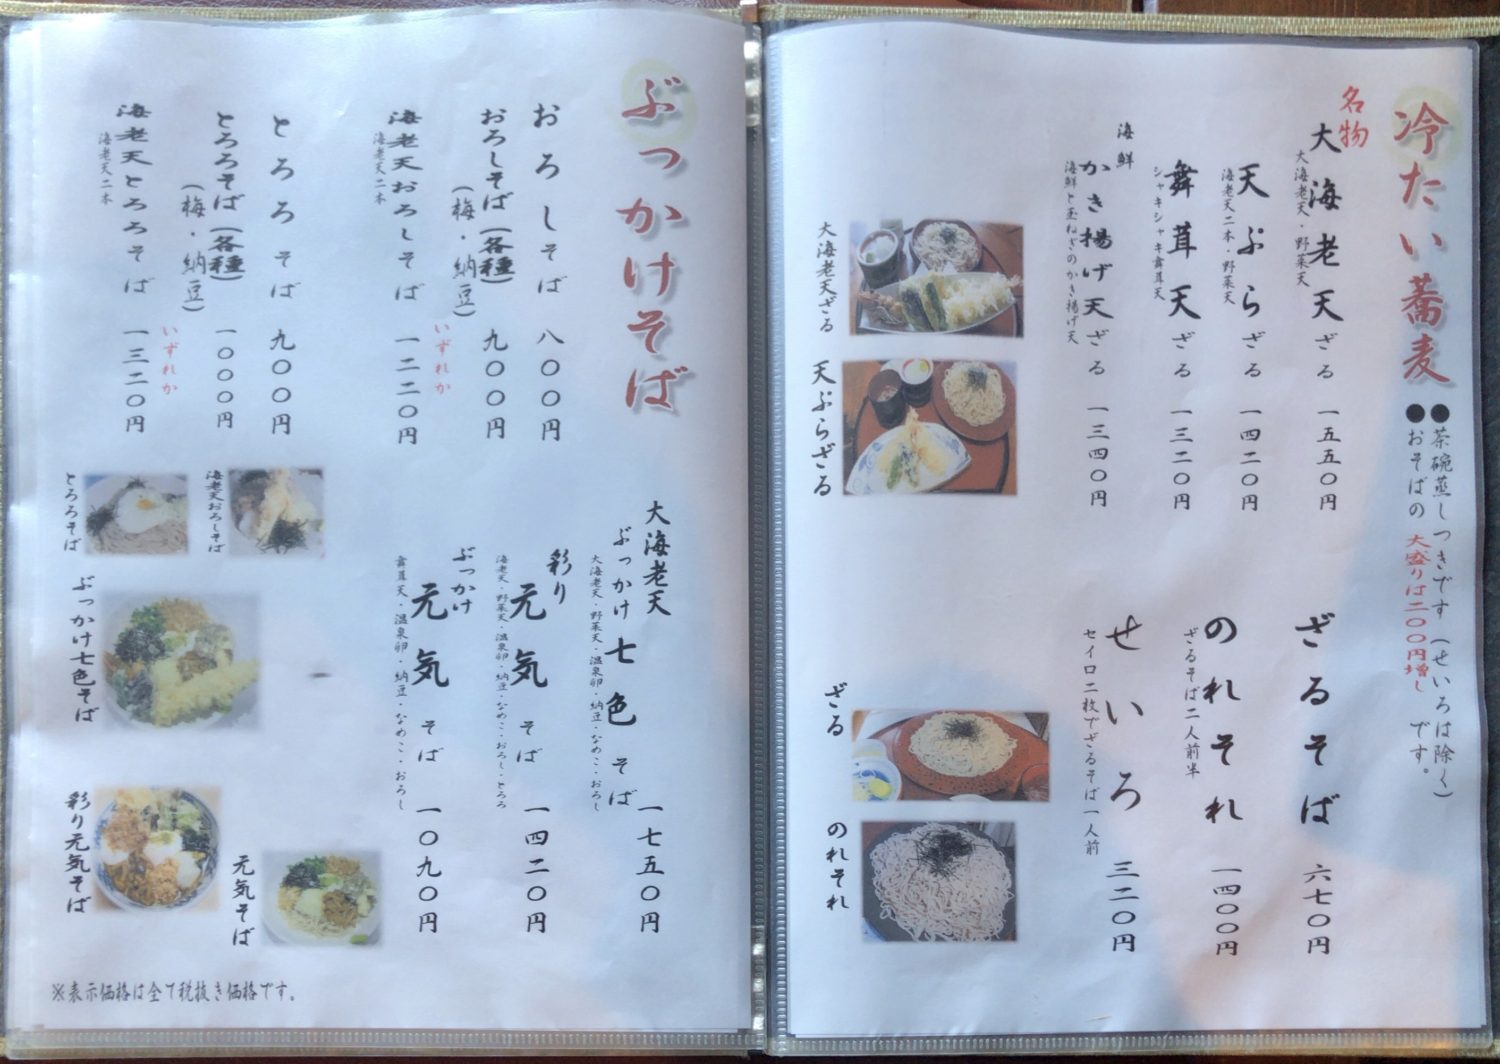 冷たい蕎麦
●茶碗蒸しつきです（せいろは除く）
●おそばの大盛りは二〇〇円増しです。
名物
大海老天ざる 一五五〇円
大海老天・野菜天
天ぷらざる 一四二〇円
海老天二本・野菜天
舞茸天ざる 一三二〇円
シャキシャキ舞茸天
海鮮
かき揚げ天ざる 一三四〇円
海鮮と玉ねぎのかき揚げ天
ざるそば 六七〇円
のれそれ 一四〇〇円
ざるそば二人前半
せいろ 三二〇円
セイロ二枚でざるそば一人前
大海老天ざる
天ぷらざる
ざる
のれそれ
ぶっかけそば
おろしそば 八〇〇円
おろしそば（各種） 九〇〇円
（梅・納豆）
いずれか
海老天おろしそば 一二二〇円
海老天二本
とろろそば 九〇〇円
とろろそば（各種） 一〇〇〇円
（梅・納豆）
いずれか
海老天とろろそば 一三二〇円
海老天二本
大海老天
ぶっかけ七色そば 一七五〇円
大海老天・野菜天・温泉卵・納豆・なめこ・おろし
彩り
元気そば 一四二〇円
海老天・野菜天・温泉卵・納豆・なめこ・おろし・とろろ
ぶっかけ
元気そば 一〇九〇円
舞茸天・温泉卵・納豆・なめこ・おろし
海老天おろしそば
とろろそば
ぶっかけ七色そば
彩り元気そば
元気そば
※表示価格は全て税抜き価格です。